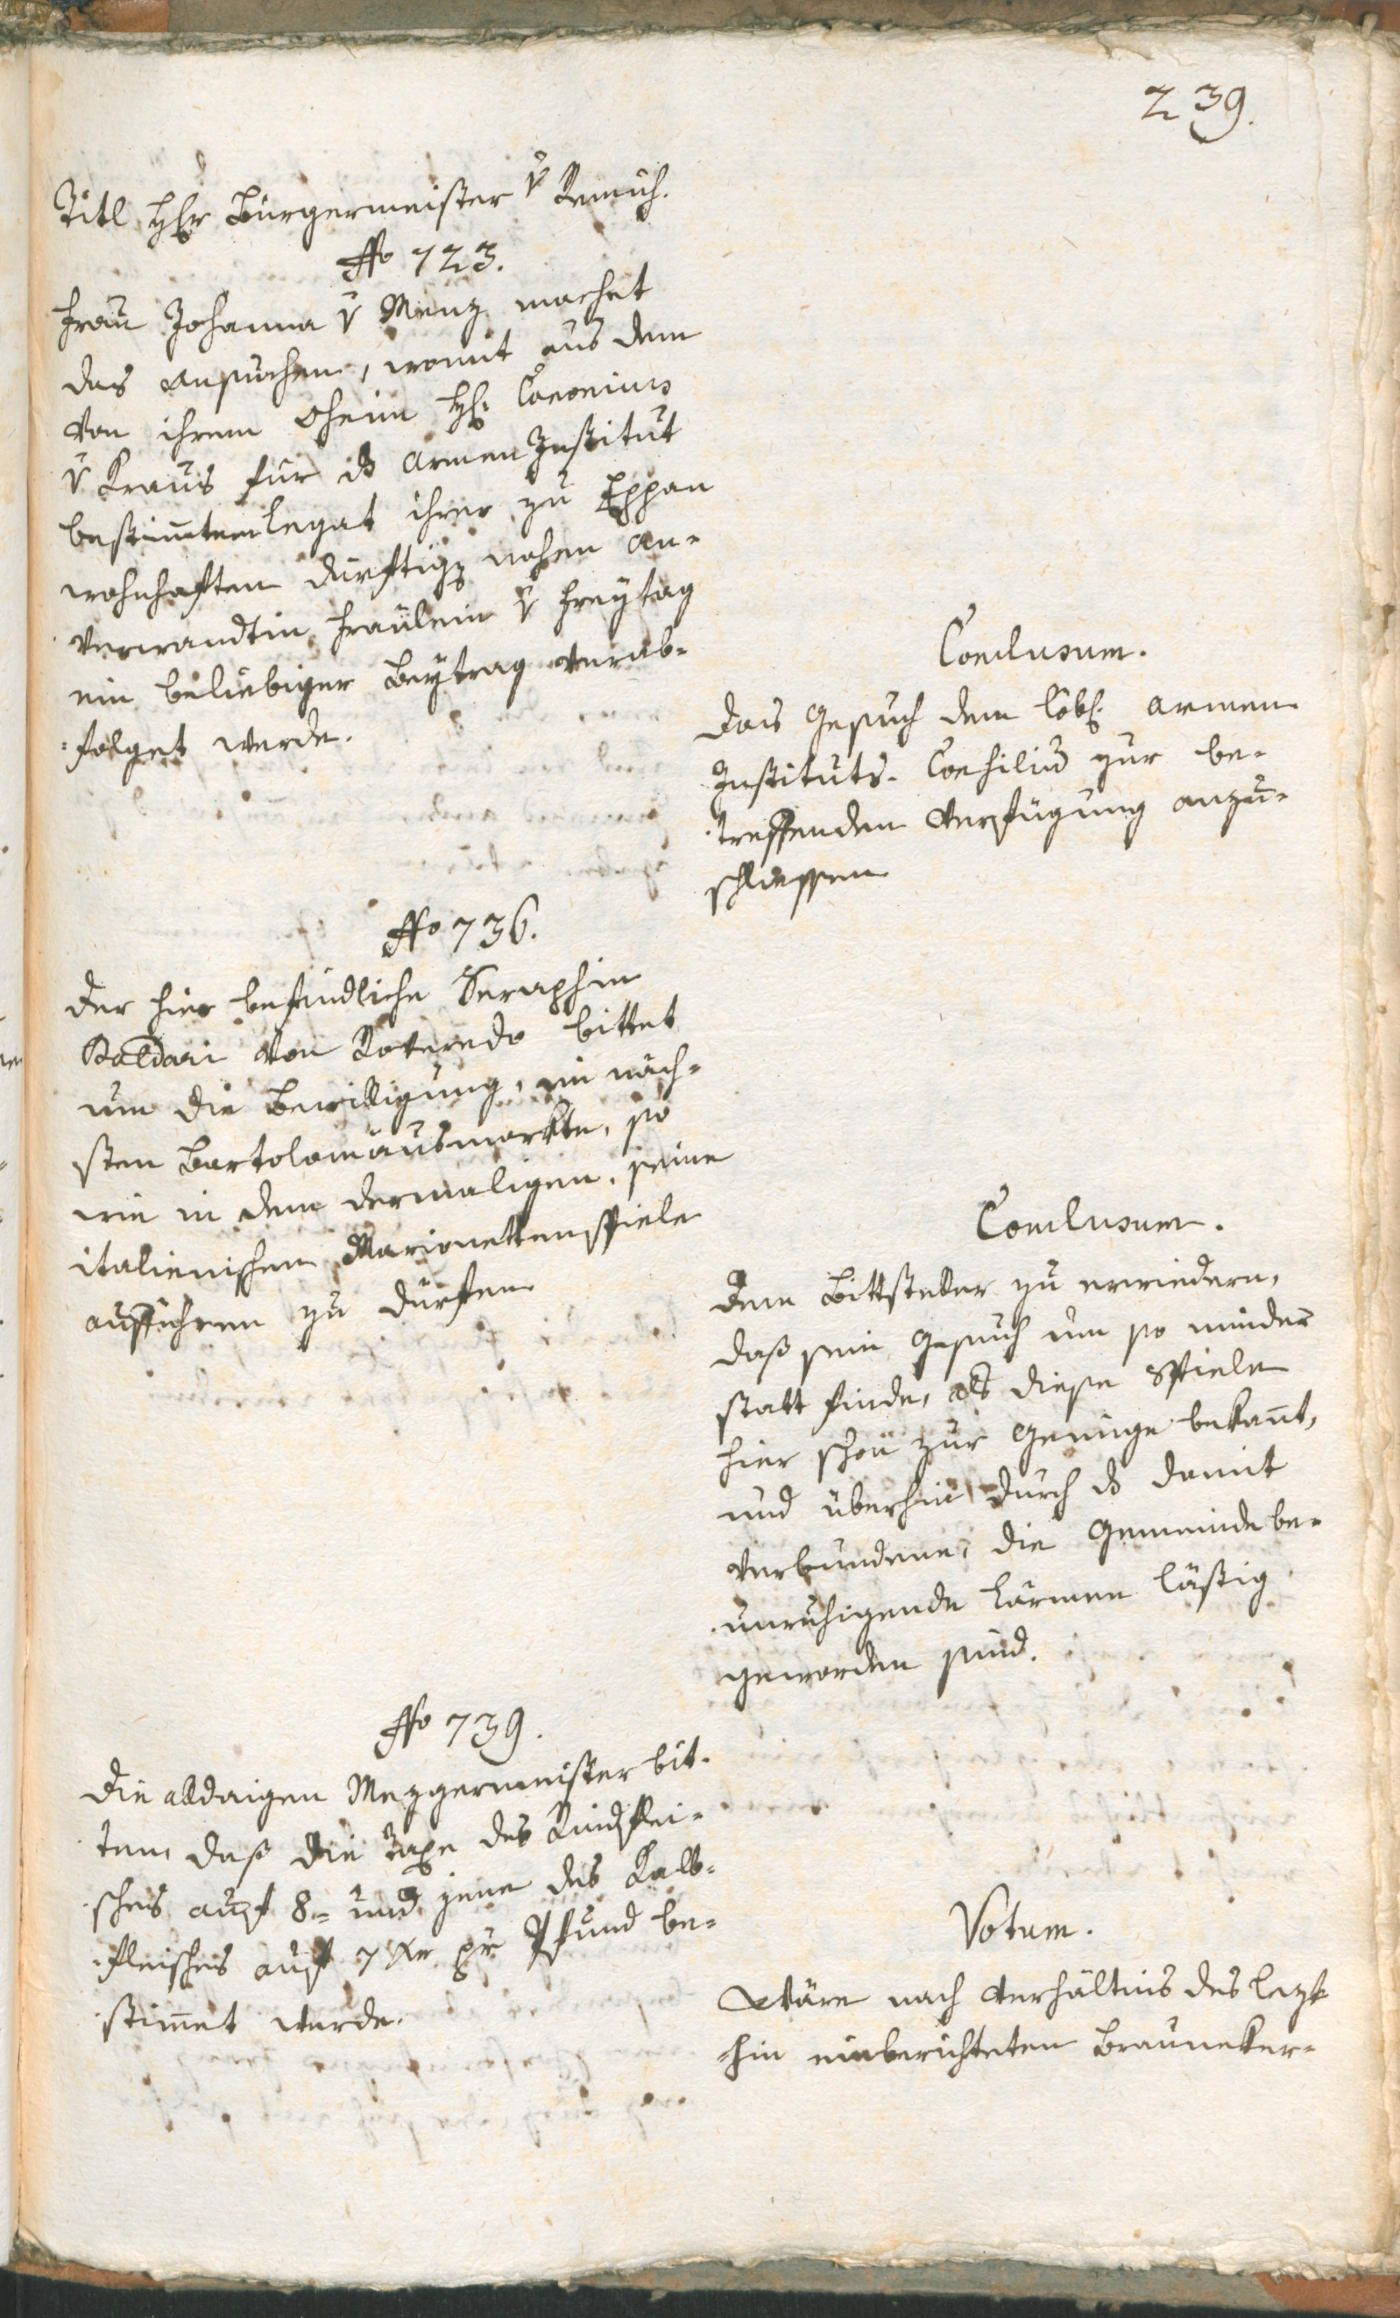 239.
Titl Hr Burgermeister v Remich.
No 723.
Frau Johanna v Menz machet
das Ansuchen, womit aus dem
von ihrem Oheim H: Canonicus
v Kraus fur ds Armen Institut
bestim̄ten Legat ihrer zu Eppan
wohnhaften durftig nahen An¬
verwandtin Fräulein v Freytag
ein beliebiger Beytrag verab¬
folget werde.
Conclusum.
Das Gesuch dem löbl. Armen
Instituts-Consilium zur be¬
treffenden Verfügung anzu¬
schliessen
No 736.
Der hier befindliche Seraphin
von Roveredo bittet
um die Bewilligung, im näch¬
sten Bartolomäusmarkte, so
wie in dem dermaligen, seine
italienischen Marionettenspiele
aufführen zu dürfen
Conclusum.
Dem Bittsteller zu erwiedern,
daß sein Gesuch um so minder
statt finde, als diese Spiele
hier schon zur Genüge bekan̄t,
und überhin durch ds damit
verbundene, die Gemeinde be¬
unruhigende Lärmen lästig
geworden sind.
No 739.
Die alldaigen Mezgermeister bit¬
ten, daß die Taxe des Rindflei¬
sches auf 8- und jene des Kalb¬
fleisches auf 7 Xr pr Pfund be¬
stim̄et werde.
Votum.
Wäre nach Verhältnis des lezt
hin einberichteten Brauneker-